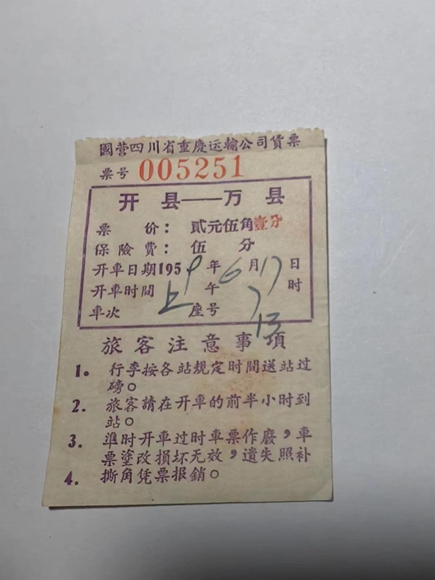 國营四川省重慶运輸公司貨票
票号 005251
开县——万县
票价：貳元伍角壹分
保險費：伍分
开車日期1959年6月17日
开車时間上午7时
車次 座号13
旅客注意事項
1。行李按各站规定时間送站过
磅。
2。旅客請在开車的前半小时到
站。
3。準时开車过时車票作廢，車
票塗改損坏无效，遺失照补
4。撕角凭票报銷。